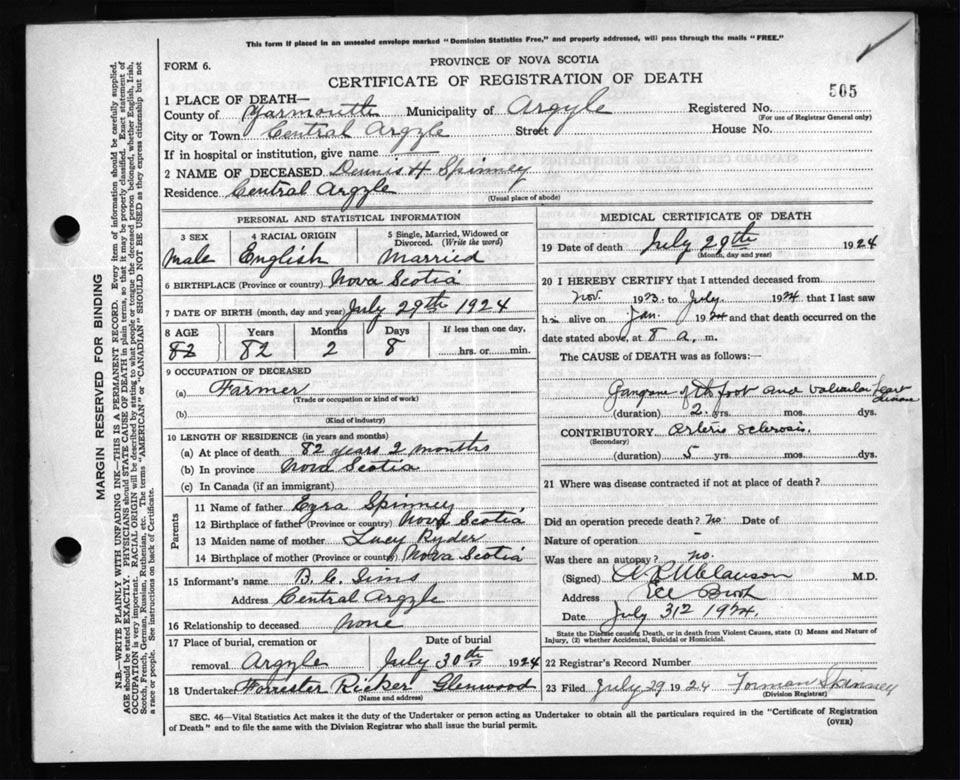 This form if placed in an unsealed envelope marked "Dominion Statistics Free," and properly addressed, will pass through the mails "FREE."
PROVINCE OF NOVA SCOTIA
FORM 6.
CERTIFICATE OF REGISTRATION OF DEATH
505
1 PLACE OF DEATH—
County of Yarmouth Municipality of Argyle Registered No.
(For use of Registrar General only)
City or Town Central Argyle Street House No.
If in hospital or institution, give name
2 NAME OF DECEASED Dennis H Spinney
Residence Central Argyle
(Usual place of abode)
PERSONAL AND STATISTICAL INFORMATION
3 SEX 4 RACIAL ORIGIN 5 Single, Married, Widowed or Divorced. (Write the word)
Male English Married
6 BIRTHPLACE (Province or country) Nova Scotia
7 DATE OF BIRTH (month, day and year) July 29th 1924
8 AGE Years Months Days If less than one day,
82 82 2 8 hrs. or min.
9 OCCUPATION OF DECEASED
(a) Farmer
(Trade or occupation or kind of work)
(b)
(Kind of industry)
10 LENGTH OF RESIDENCE (in years and months)
(a) At place of death 82 years 2 months
(b) In province Nova Scotia
(c) In Canada (if an immigrant)
Parents
11 Name of father Ezra Spinney
12 Birthplace of father (Province or country) Nova Scotia
13 Maiden name of mother Lucy Ryder
14 Birthplace of mother (Province or country) Nova Scotia
15 Informant's name B. C. Sims
Address Central Argyle
16 Relationship to deceased None
17 Place of burial, cremation or removal Argyle Date of burial July 30th 1924
18 Undertaker Forrester Ricker Glenwood
(Name and address)
MEDICAL CERTIFICATE OF DEATH
19 Date of death July 29th 1924
(Month, day and year)
20 I HEREBY CERTIFY that I attended deceased from
Nov. 1923 to July 1924 that I last saw
him alive on Jan. 1924 and that death occurred on
date stated above, at 8 a. m.
The CAUSE OF DEATH was as follows:—
Gangrene of the foot and Valvular heart disease
(duration) 2 yrs. mos. dys.
CONTRIBUTORY Arterio Sclerosis.
(Secondary)
(duration) 5 yrs. mos. dys.
21 Where was disease contracted if not at place of death?
Did an operation precede death? no Date of
Nature of operation –
Was there an autopsy? no.
(Signed) M.D.
Address Eel Brook
Date July 31 1924.
State the Disease causing Death, or in death from Violent Causes, state (1) Means and Nature of Injury, (2) whether Accidental, Suicidal or Homicidal.
22 Registrar's Record Number
23 Filed July 29 1924 Forman Spinney
(Division Registrar)
SEC. 46—Vital Statistics Act makes it the duty of the Undertaker or person acting as Undertaker to obtain all the particulars required in the "Certificate of Registration
of Death" and to file the same with the Division Registrar who shall issue the burial permit.
(OVER)
MARGIN RESERVED FOR BINDING
N.B.—WRITE PLAINLY WITH UNFADING INK—THIS IS A PERMANENT RECORD. Every item of information should be carefully supplied.
AGE should be stated EXACTLY. PHYSICIANS should STATE CAUSE OF DEATH in plain terms, so that it may be properly classified. Exact statement of
OCCUPATION is very important. RACIAL ORIGIN will be described by stating to what people or tongue the deceased person belonged, whether English, Irish,
Scotch, French, German, Russian, Ruthenian, etc. The terms "AMERICAN" or "CANADIAN" SHOULD NOT BE USED as they express citizenship but not
a race or people. See instructions on back of Certificate.